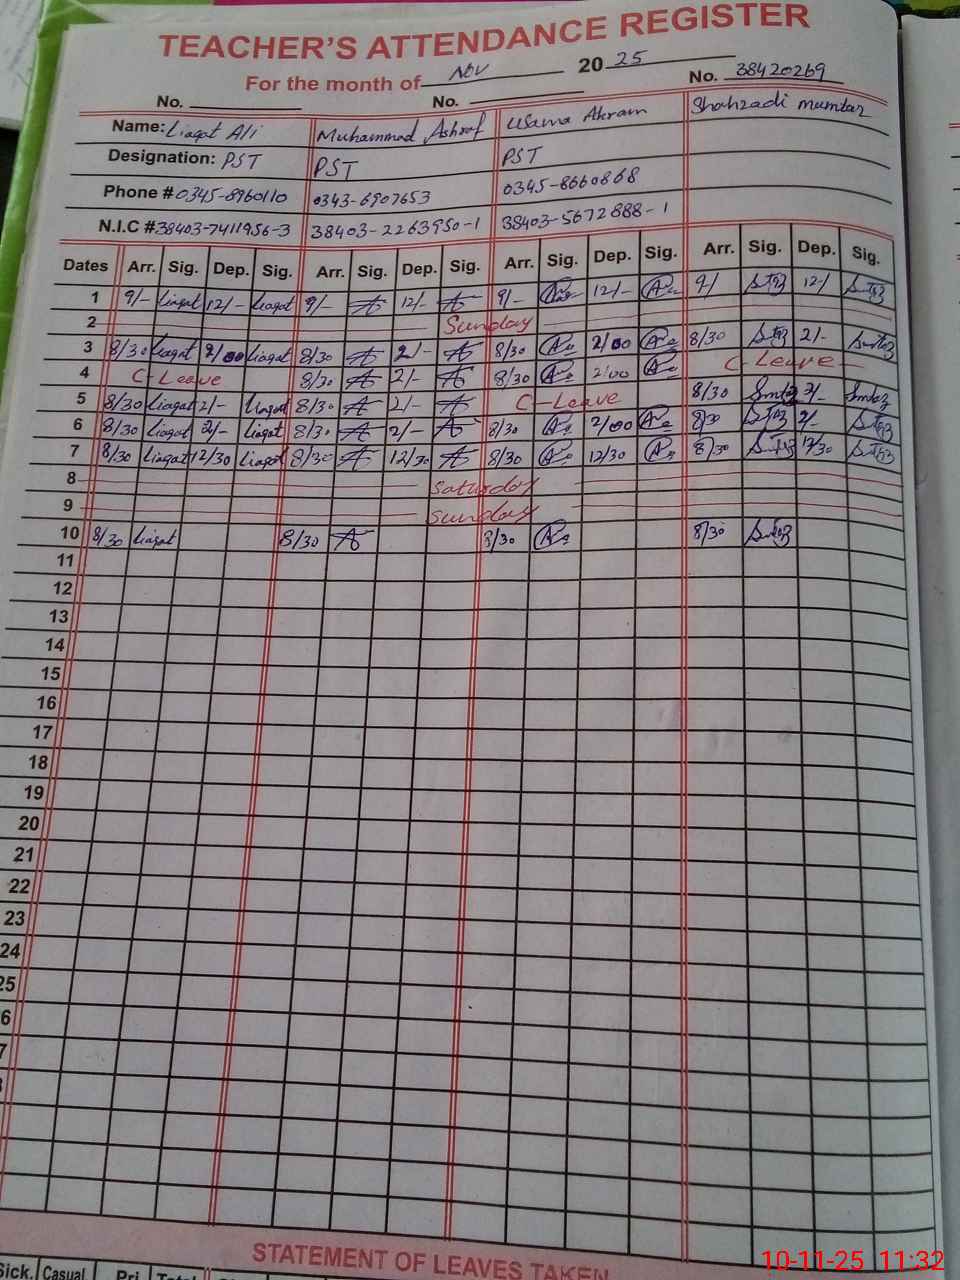 TEACHER'S ATTENDANCE REGISTER
For the month of Nov 20 25
No. No. No. 38420269
Name: Liaqat Ali Muhammad Ashraf Usama Akram Shahzadi mumtaz
Designation: PST PST PST
Phone # 0345-8960110 0343-6907653 0345-8660868
N.I.C # 38403-7411956-3 38403-2263950-1 38403-5672888-1
Dates Arr. Sig. Dep. Sig. Arr. Sig. Dep. Sig. Arr. Sig. Dep. Sig. Arr. Sig. Dep. Sig.
1 9/- Liaqat 12/- Liaqat 9/- 12/- 9/- 12/- 9/ 12/
2 Sunday
3 8/30 Liaqat 2/00 Liaqat 8/30 2/- 8/30 2/00 8/30 2/-
4 C-Leave 8/30 2/- 8/30 2/00 C-Leave
5 8/30 Liaqat 2/- Liaqat 8/30 2/- C-Leave 8/30 2/-
6 8/30 Liaqat 2/- Liaqat 8/30 2/- 8/30 2/00 8/30 2/-
7 8/30 Liaqat 12/30 Liaqat 8/30 12/30 8/30 12/30 8/30 12/30
8 Saturday
9 Sunday
10 8/30 Liaqat 8/30 8/30 8/30
11
12
13
14
15
16
17
18
19
20
21
22
23
24
25
6
7
STATEMENT OF LEAVES TAKEN
Sick. Casual Pri Total
10-11-25 11:32